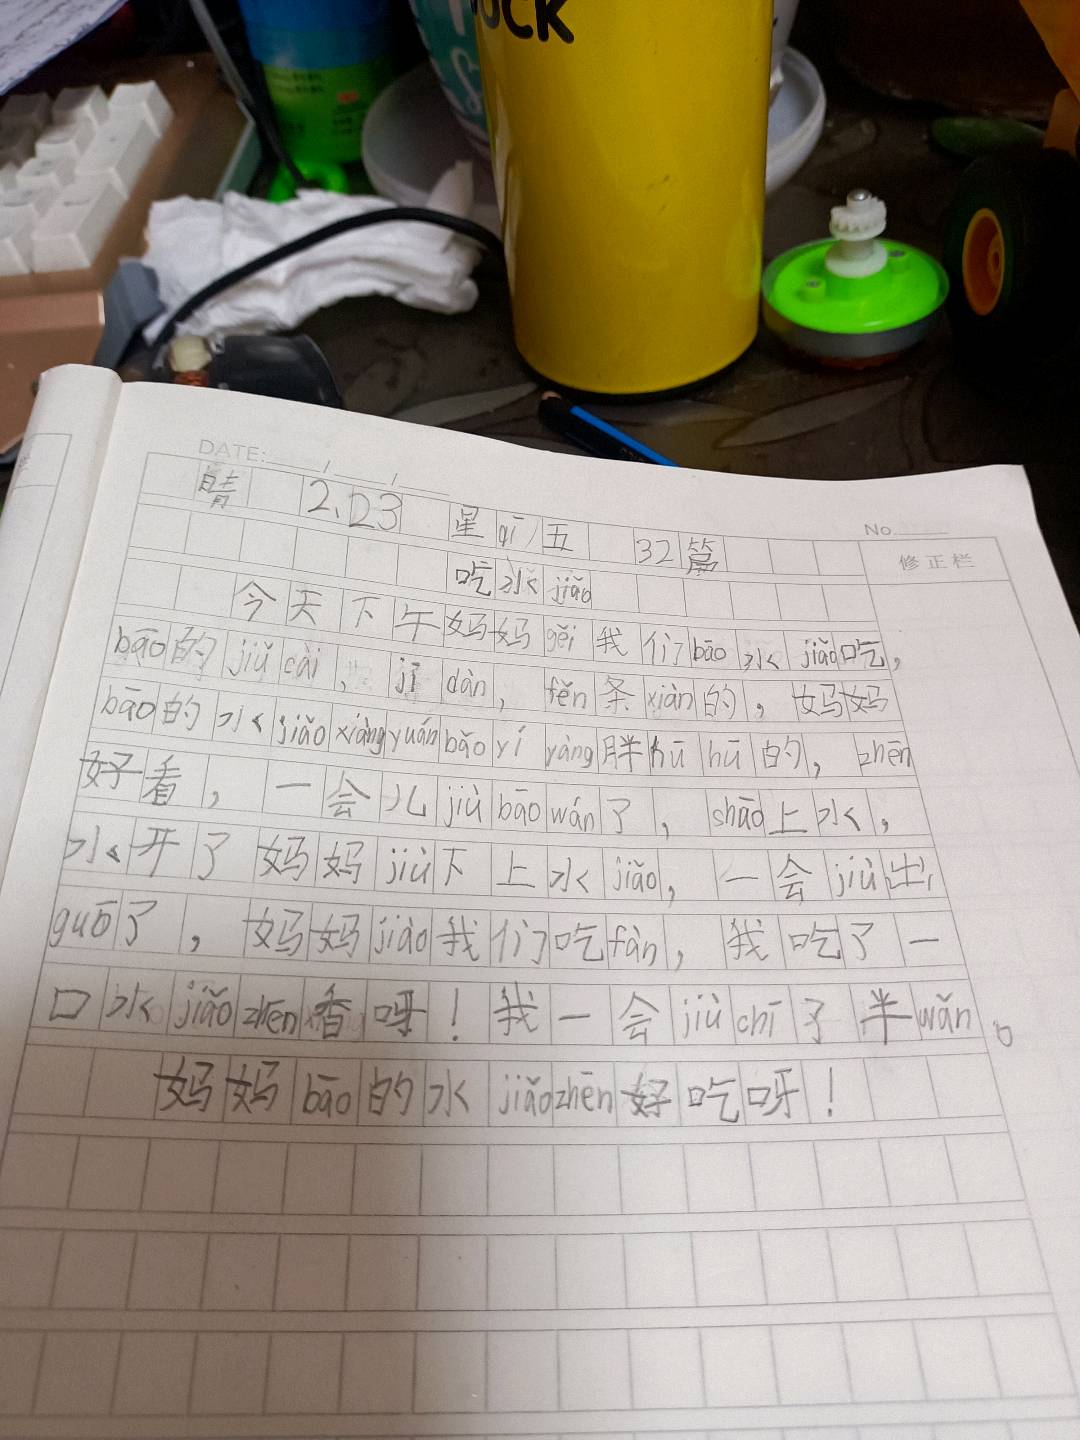 UCK
DATE: / /
No.
修正栏
晴 2、23 星qī五 32篇
吃水jiǎo
今天下午妈妈gěi我们bāo水jiǎo吃，
bāo的jiǔ cài、jī dàn，fěn条xiàn的，妈妈
bāo的水jiǎo xiàng yuán bǎo yí yàng胖hū hū的，zhēn
好看，一会儿jiù bāo wán了，shāo上水，
水开了妈妈jiù下上水jiǎo，一会jiù出
guō了，妈妈jiào我们吃fàn，我吃了一
口水jiǎo zhēn香呀！我一会jiù chī了半wǎn。
妈妈bāo的水jiǎo zhēn好吃呀！